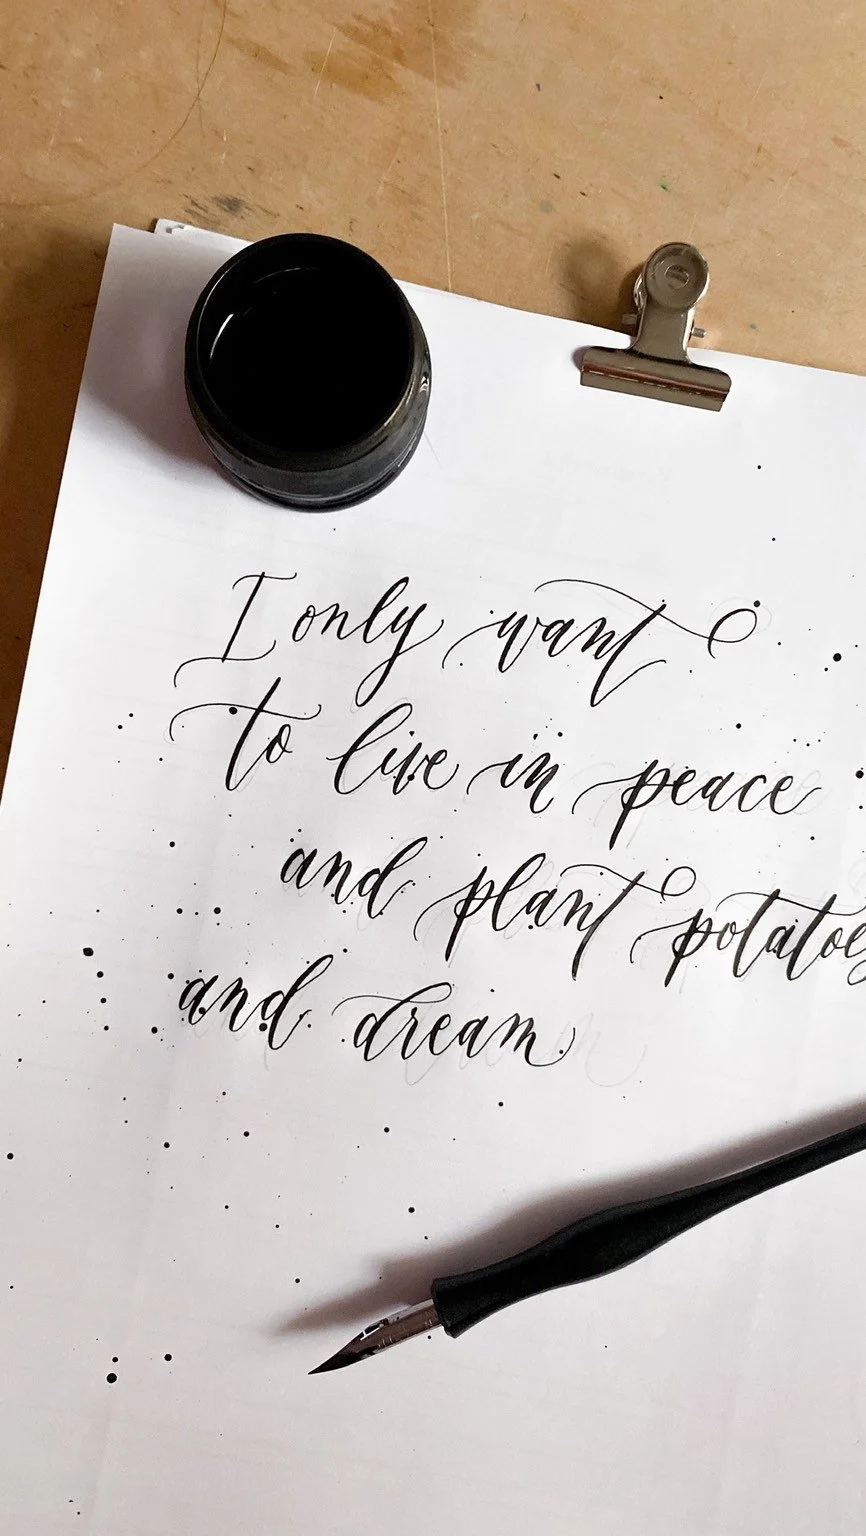 I only want
to live in peace
and plant potatoes
and dream